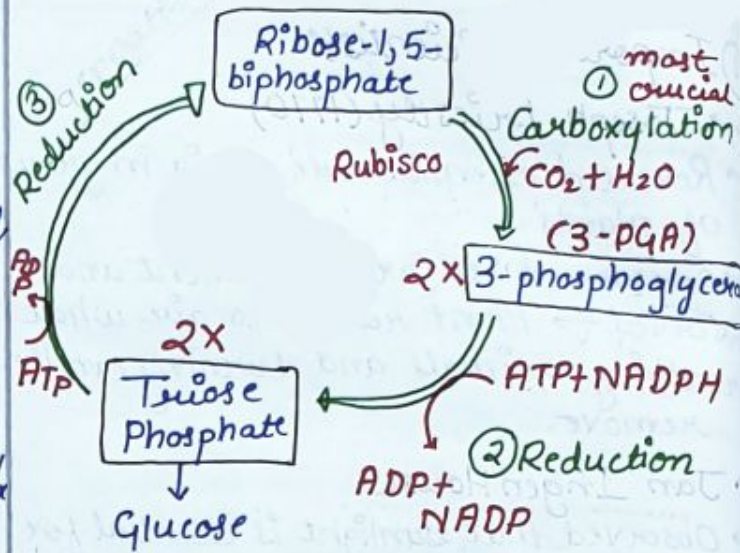 Ribose-1,5-
biphosphate
③
Reduction
① most
crucial
Carboxylation
Rubisco
CO₂+H₂O
(3-PGA)
2x 3-phosphoglycera
ATP+NADPH
② Reduction
ADP+
NADP
2x
Triose
Phosphate
Glucose
ATP